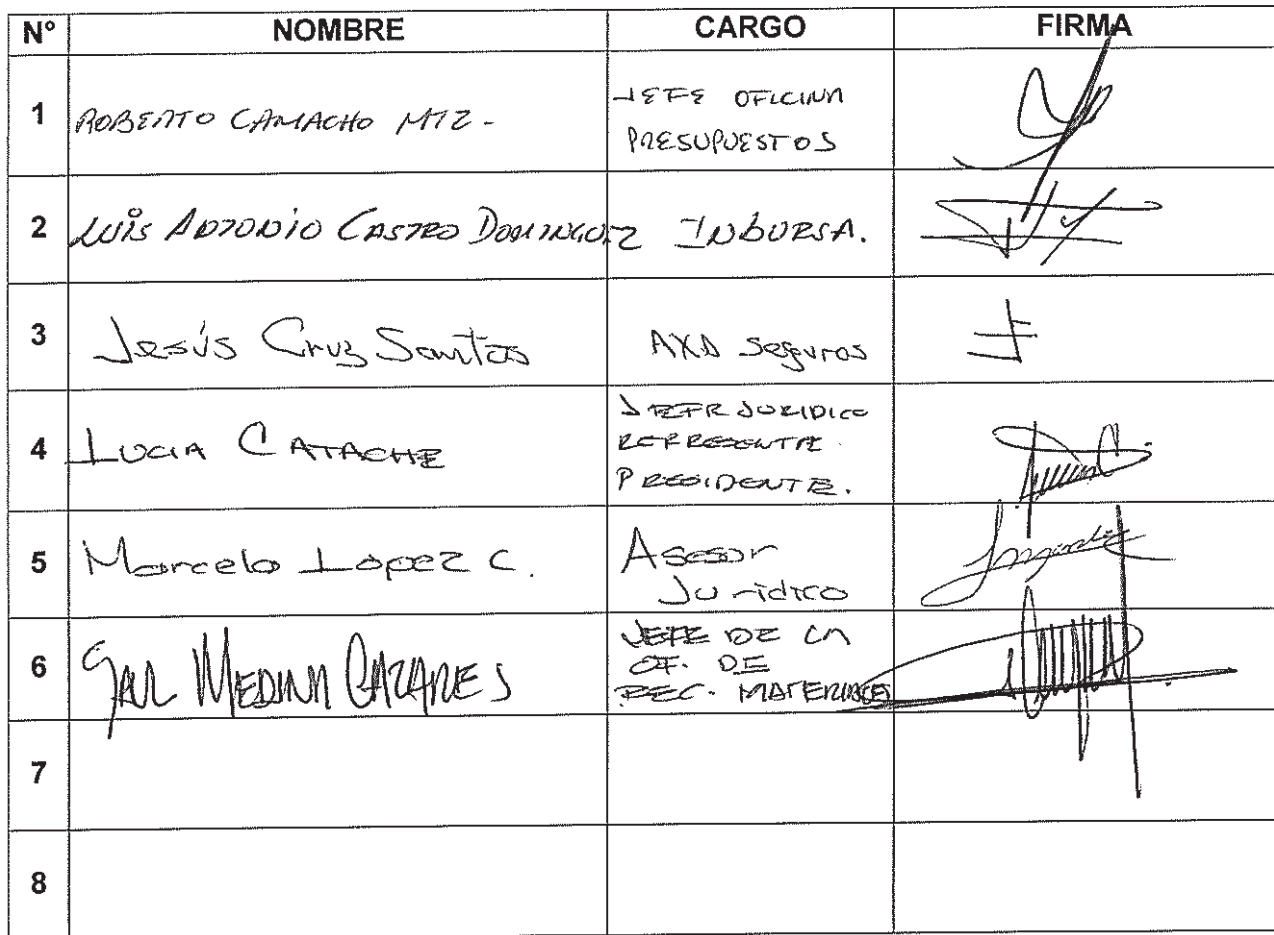 N° NOMBRE CARGO FIRMA
1 ROBERTO CAMACHO MTZ- JEFE OFICINA
PRESUPUESTOS
2 LUIS ANTONIO CASTRO DOMINGUEZ INBURSA.
3 Jesús Cruz Santos AXA Seguros
4 LUCIA CATACHE JEFE JURIDICO
REPRESENTE
PRESIDENTE.
5 Marcelo Lopez C. Asesor
Juridico
6 MEDINA CAZARES JEFE DE LA
OF. DE
REC. MATERIALES
7
8